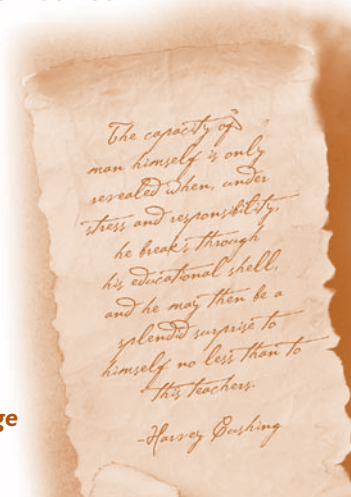 The capacity of
man himself is only
revealed when, under
stress and responsibility,
he breaks through
his educational shell,
and he may then be a
splendid surprise to
himself no less than to
this teachers.
-Harvey Cushing
ge